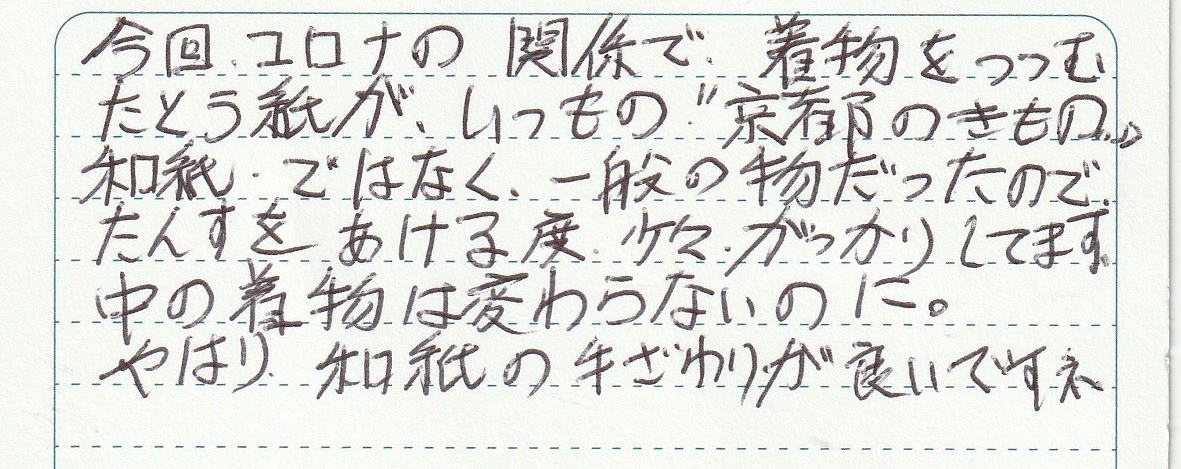 今回、コロナの関係で、着物をつつむ
たとう紙が、いつもの〝京都のきもの〟
和紙、ではなく、一般の物だったので、
たんすをあける度、少々、がっかりしてます。
中の着物は変わらないのに。
やはり、和紙の手ざわりが良いですネ